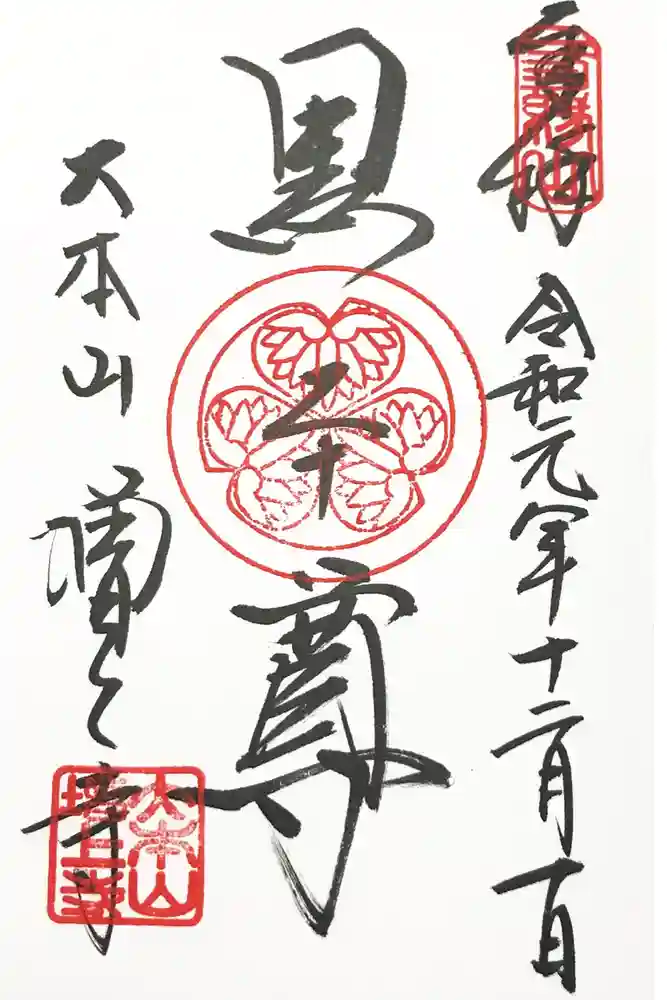 奉拝
令和元年十二月一日
黒本尊
大本山
増上寺
大本山
増上寺